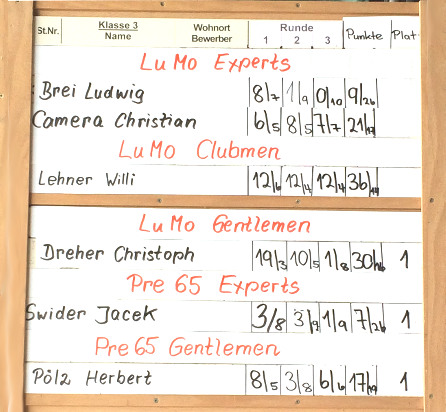 St.Nr. Klasse 3 Name Wohnort Bewerber Runde 1 2 3 Punkte Plat
LuMo Experts
Brei Ludwig 8/7 1/9 0/10 9/26
Camera Christian 6/5 8/5 7/7 21/17
LuMo Clubmen
Lehner Willi 12/6 12/4 12/4 36/14
LuMo Gentlemen
Dreher Christoph 19/3 10/5 1/8 30/16 1
Pre 65 Experts
Swider Jacek 3/8 3/9 1/9 7/26 1
Pre 65 Gentlemen
Pölz Herbert 8/5 3/8 6/6 17/19 1